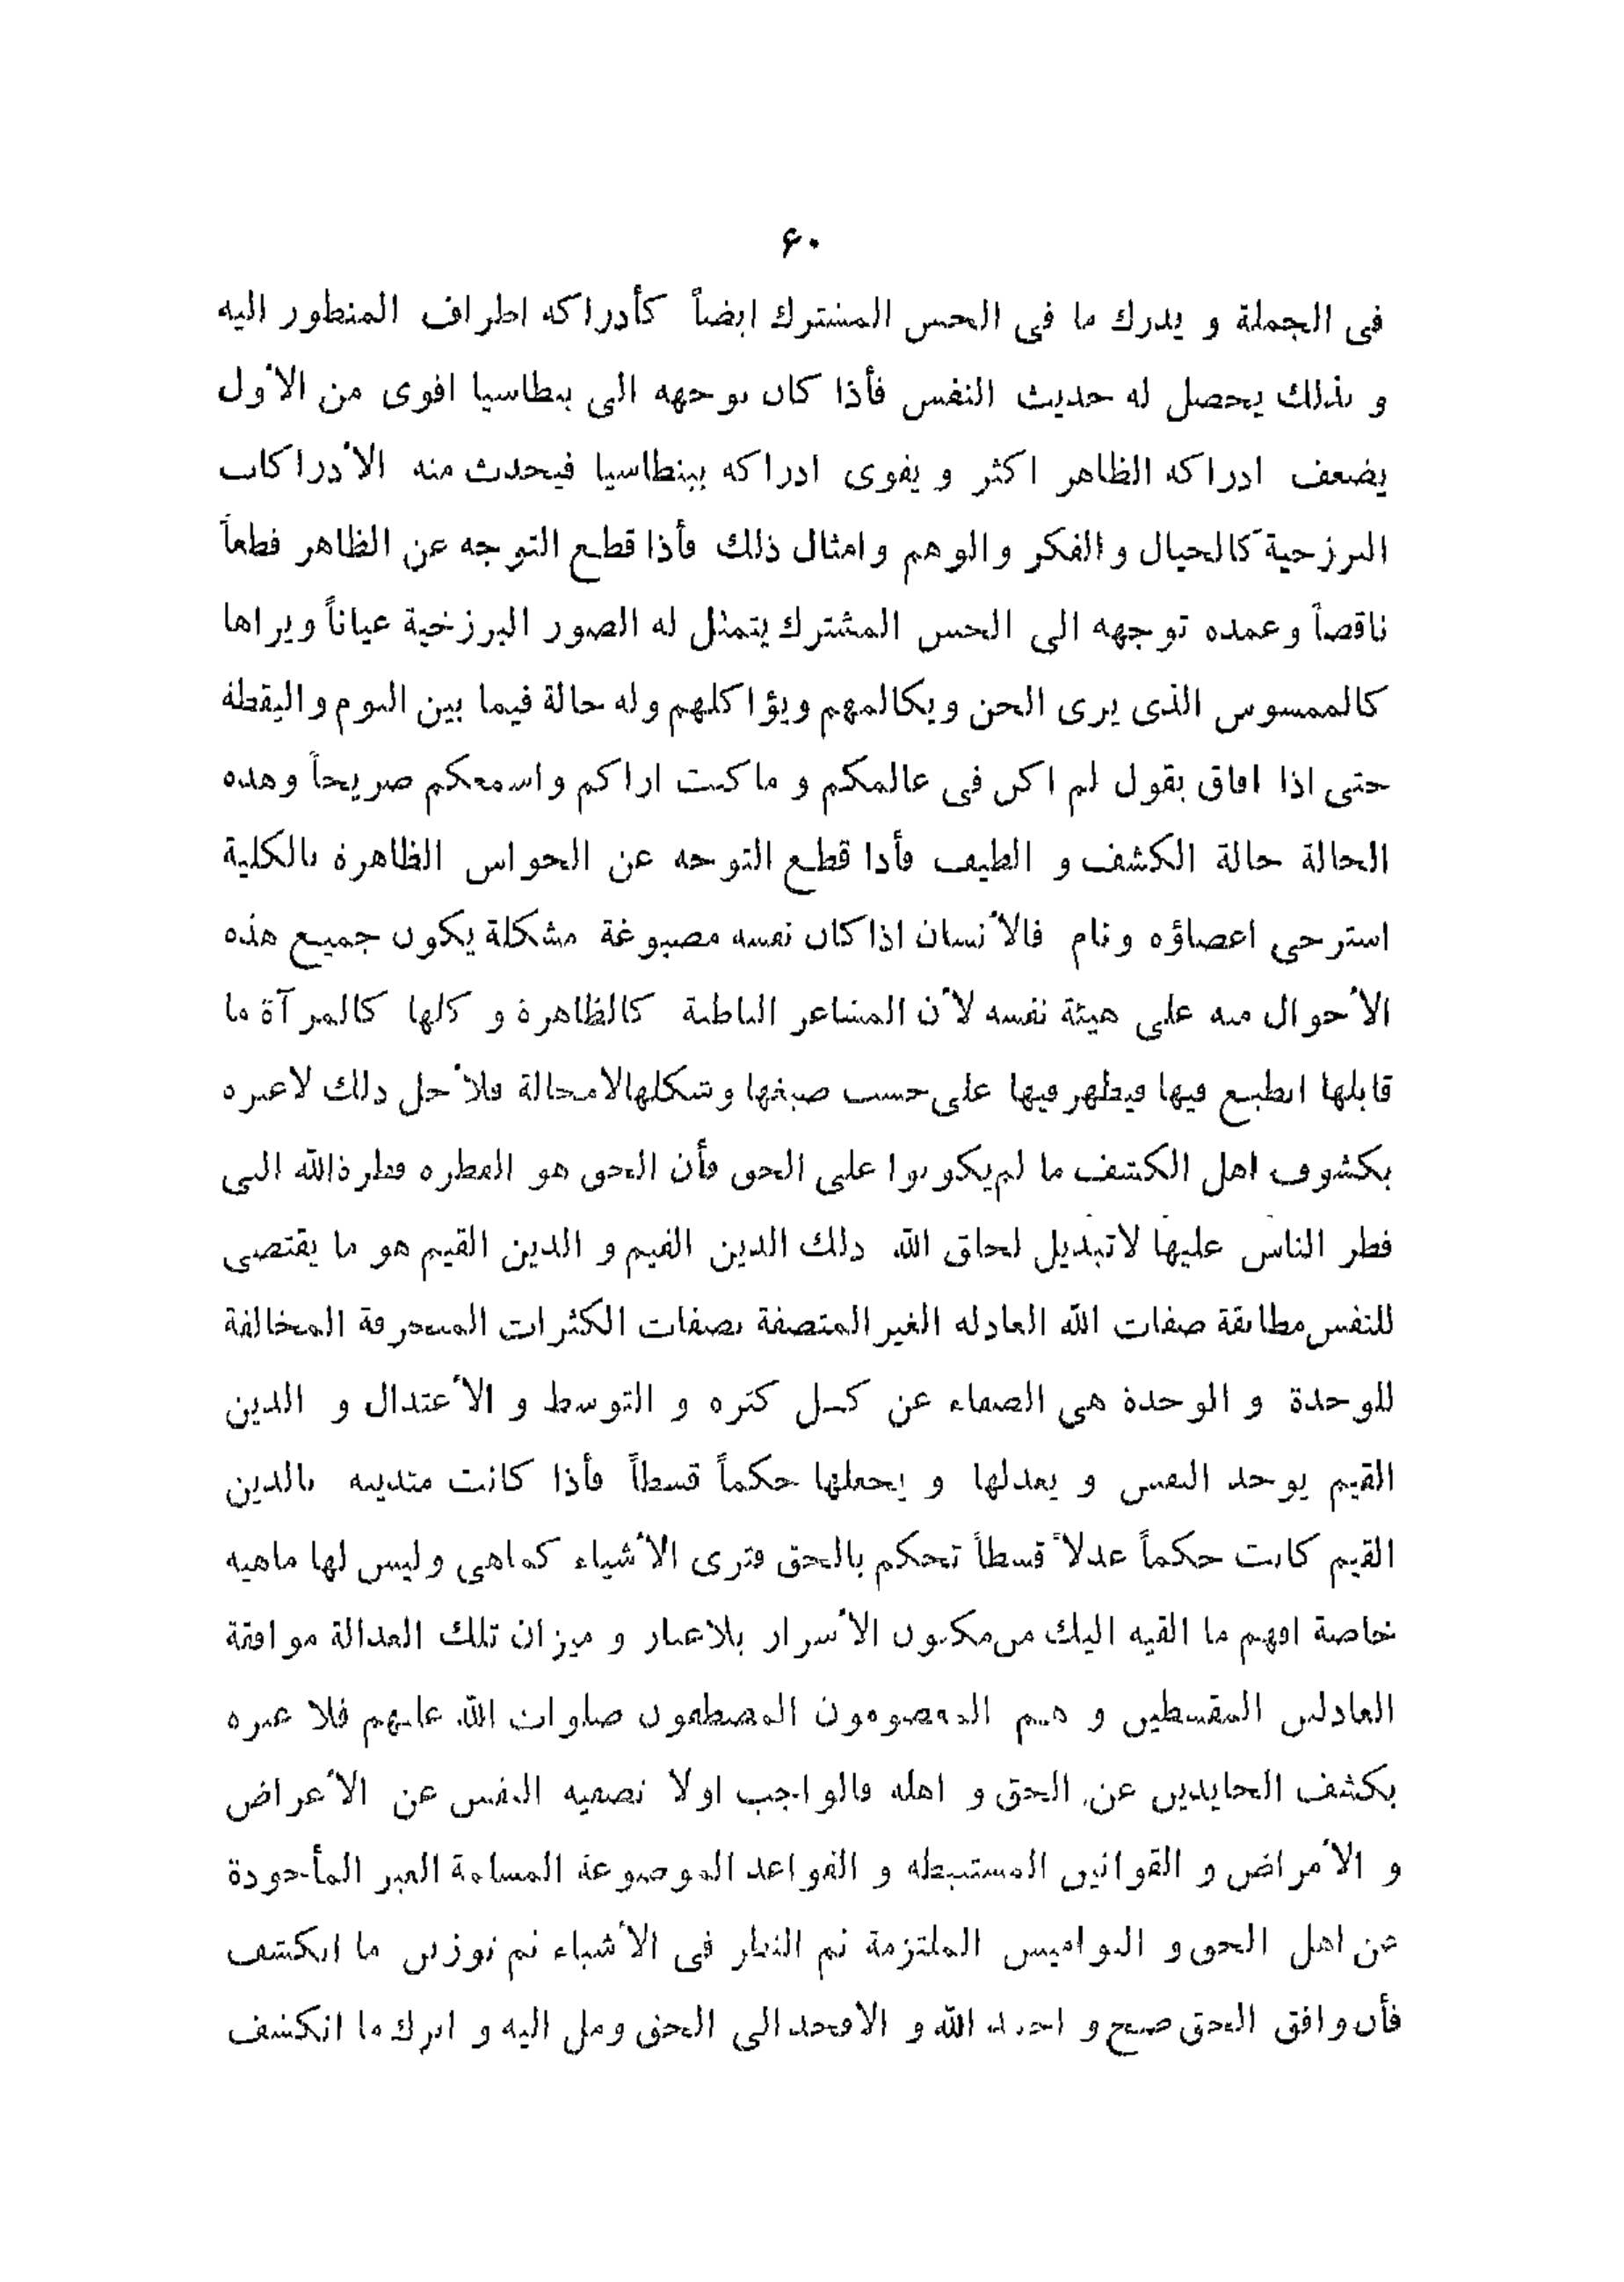 ۶۰
فى الجملة و يدرك ما فى الحس المشترك ايضاً كأدراكه اطراف المنظور اليه
و بذلك يحصل له حديث النفس فأذا كان توجهه الى بنطاسيا اقوى من الأول
يضعف ادراكه الظاهر اكثر و يقوى ادراكه ببنطاسيا فيحدث منه الأدراكات
البرزخية كالخيال و الفكر و الوهم و امثال ذلك فأذا قطع التوجه عن الظاهر قطعاً
ناقصاً وعمده توجهه الى الحس المشترك يتمثل له الصور البرزخية عياناً ويراها
كالممسوس الذى يرى الجن ويكالمهم ويؤاكلهم وله حالة فيما بين النوم واليقظة
حتى اذا افاق يقول لم اكن فى عالمكم و ما كنت اراكم واسمعكم صريحاً وهذه
الحالة حالة الكشف و الطيف فأذا قطع التوجه عن الحواس الظاهرة بالكلية
استرخى اعضاؤه ونام فالأنسان اذا كان نفسه مصبوغة مشكلة يكون جميع هذه
الأحوال منه على هيئة نفسه لأن المشاعر الباطنة كالظاهرة و كلها كالمرآة ما
قابلها انطبع فيها فيظهر فيها على حسب صبغها وشكلها لامحالة فلأجل ذلك لاعبره
بكشوف اهل الكشف ما لم يكونوا على الحق فأن الحق هو الفطره فطرة الله التى
فطر الناس عليها لاتبديل لخلق الله ذلك الدين القيم و الدين القيم هو ما يقتضى
للنفس مطابقة صفات الله العادله الغير المتصفة بصفات الكثرات المنحرفة المخالفة
للوحدة و الوحدة هى الصفاء عن كل كثره و التوسط و الأعتدال و الدين
القيم يوحد النفس و يعدلها و يجعلها حكماً قسطاً فأذا كانت متدينه بالدين
القيم كانت حكماً عدلاً قسطاً تحكم بالحق فترى الأشياء كماهى وليس لها ماهيه
خاصة افهم ما القيه اليك من مكنون الأسرار بلاغبار و ميزان تلك العدالة موافقة
العادلين المقسطين و هم المعصومون المصطفون صلوات الله عليهم فلا عبره
بكشف الحايدين عن الحق و اهله فالواجب اولا تصفيه النفس عن الأعراض
و الأمراض و القوانين المستنبطه و القواعد الموضوعة المسلمة الغير المأخوذة
عن اهل الحق و النواميس الملتزمة ثم النظر فى الأشياء ثم توزين ما انكشف
فأن وافق الحق صح و احمد الله و الا فخذ الى الحق ومل اليه و اترك ما انكشف